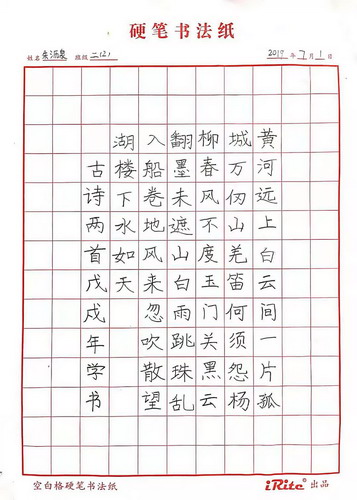 硬笔书法纸
姓名 班级 二(2) 2019年7月1日
黄河远上白云间一片孤
城万仞山羌笛何须怨杨
柳春风不度玉门关黑云
翻墨未遮山白雨跳珠乱
入船卷地风来忽吹散望
湖楼下水如天
古诗两首戊戌年学书
空白格硬笔书法纸 iRite® 出品